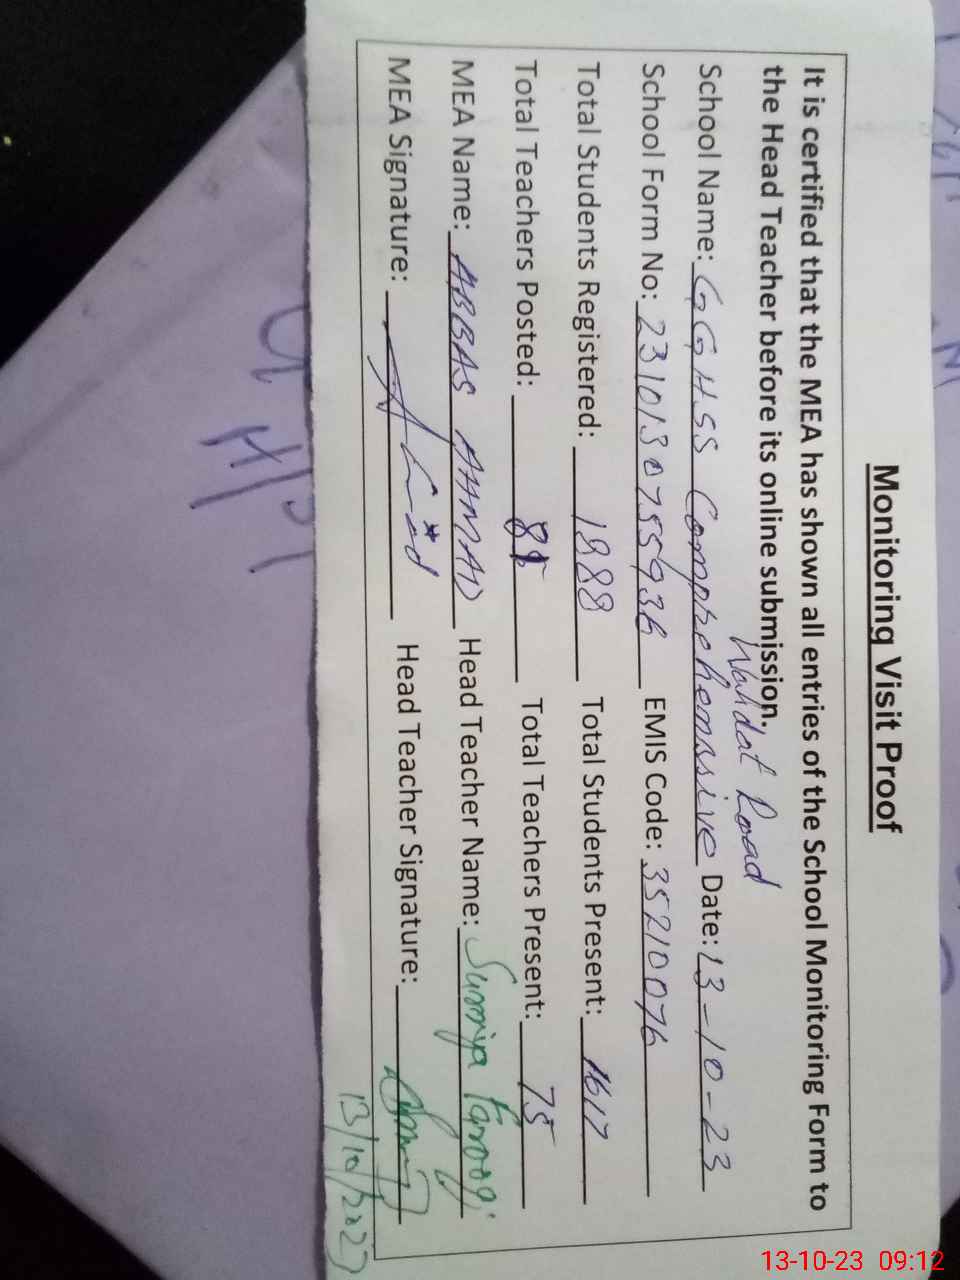 Monitoring Visit Proof
It is certified that the MEA has shown all entries of the School Monitoring Form to
the Head Teacher before its online submission.
Wahdat Road
School Name: GGHSS Comprehensive Date: 13-10-23
School Form No: 2310130755936 EMIS Code: 35210076
Total Students Registered: 1888 Total Students Present: 1617
Total Teachers Posted: Total Teachers Present: 75
MEA Name: ABBAS AHMAD Head Teacher Name: Surriya Farooqi
MEA Signature: Head Teacher Signature:
13/10/2023
13-10-23 09:12